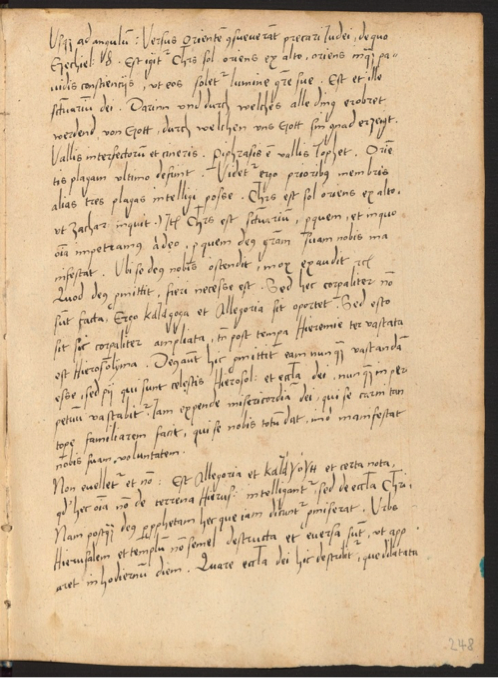 Usq3 ad angulū : Versus Oriente cōsueverāt precari Iudei, de quo
Ezechiel: 8. Est igit Chrs sol oriens ex alto, oriens inq3 pa-
vidis conscientijs, ut eos soletr lumine grē sue. Est et ille
sctuariū dei. Darinn und durch welches alle ding erobret
werdend von Gott, durch welchen uns Gott sin gnad erzeygt.
Vallis interfectorū et cineris. Piphrasis ē vallis Tophet. Orie
tis plagam ultimo desunt. Videtr ergo prioribus membris
alias tres plagas intelligi posse. Chrs est sol oriens ex alto,
ut Zachar: inquit.) Itē Chrs est sctuariū, p quem, et in quo
oīa impetramus a deo, p quem deus grām suam nobis ma
nifestat. Ubi se deus nobis ostendit, mox exaudit
Quod deus pmittit, fieri necesse est. Sed hec corpaliter nō
sūt facta. Ergo καλάγογα et Allegoria sit oportet. Sed esto
sit sic corpaliter ampliata, tn post tempa Hieremie ter vastata
est Hierosolyma. hic pmittit eam nunq3 vastandā
esse, sed pij qui sunt celestis Hierosol: et eccla dei, nunq3 in per
petuū vastabitr. Iam expende misericordiā dei, qui se carni tan
tope familiarem facit, qui se nobis totū dat, imo manifestat
nobis suam voluntatem.
Non evelletr et nō: Est Allegoria et et certa nota,
qd hec oīa nō de terrena Hierus: intelligantr sed de eccla Chri.
Nam postq3 deus pphetam hec que iam dicuntr pmiserat, Urbs
Hierusalem et templū nō semel destructa et eversa sūt, ut app
aret in hodiernū diem. Quare eccla dei hic describitr, que dilatata
248